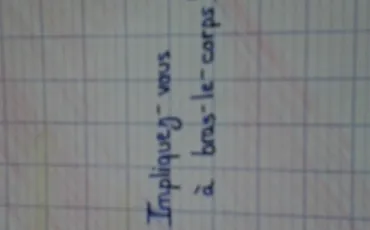 Impliquez-vous
à bras-le-corps